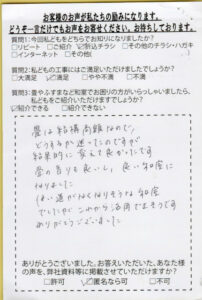 お客様のお声が私たちの励みになります。
どうぞ一言だけでもお声をお寄せください。お待ちしております。
質問1:今回私どもをどちらでお知りになりましたか?
□リピート □ご紹介 ☑折込チラシ □その他のチラシ・ハガキ
□インターネット □その他(
質問2:私どもの工事にはご満足いただけましたでしょうか?
□大満足 ☑満足 □やや不満 □不満
質問3:畳やふすまなど和室でお困りの方がいらっしゃいましたら、
私どもをご紹介いただけますでしょうか?
☑紹介できる □紹介できない
畳は結構高額なので、
どうするか迷ってたのですが
結果的に変えて良かったです
畳の香りも良いし、良い和室に
なりました
使い道がなくなりそうな和室
でしたが これから活用できそうです
ありがとうございました
ありがとうございました。お答えいただいた、あなた様
の声を、弊社資料等に掲載させていただけますか?
□許可 ☑匿名なら可 □不可